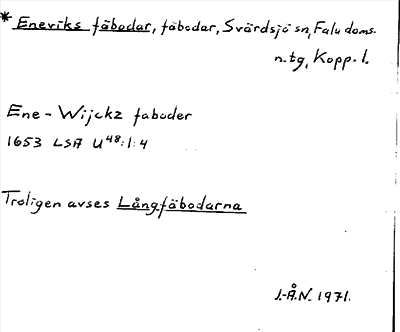 * Eneviks fäbodar, fäbodar, Svärdsjö sn, Falu doms.
n. tg, Kopp. l.
Ene - Wijckz faboder
1653 LSA U48:1:4
Troligen avses Långfäbodarna
J.-Å.N. 1971.